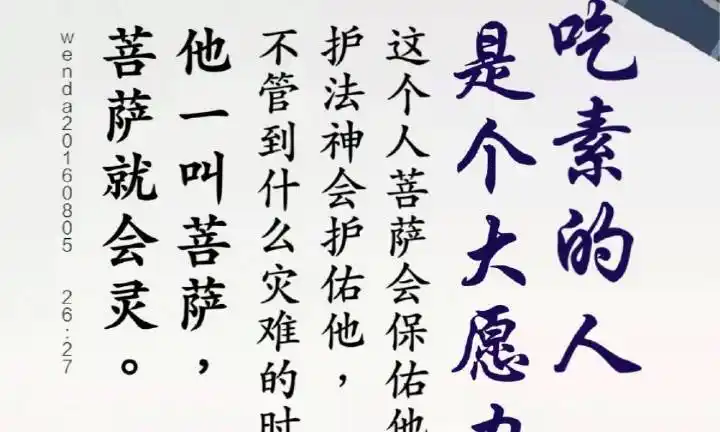 吃素的人
是个大愿
这个人菩萨会保佑他
护法神会护佑他，
不管到什么灾难的时
他一叫菩萨，
菩萨就会灵。
wenda20160805 26:27